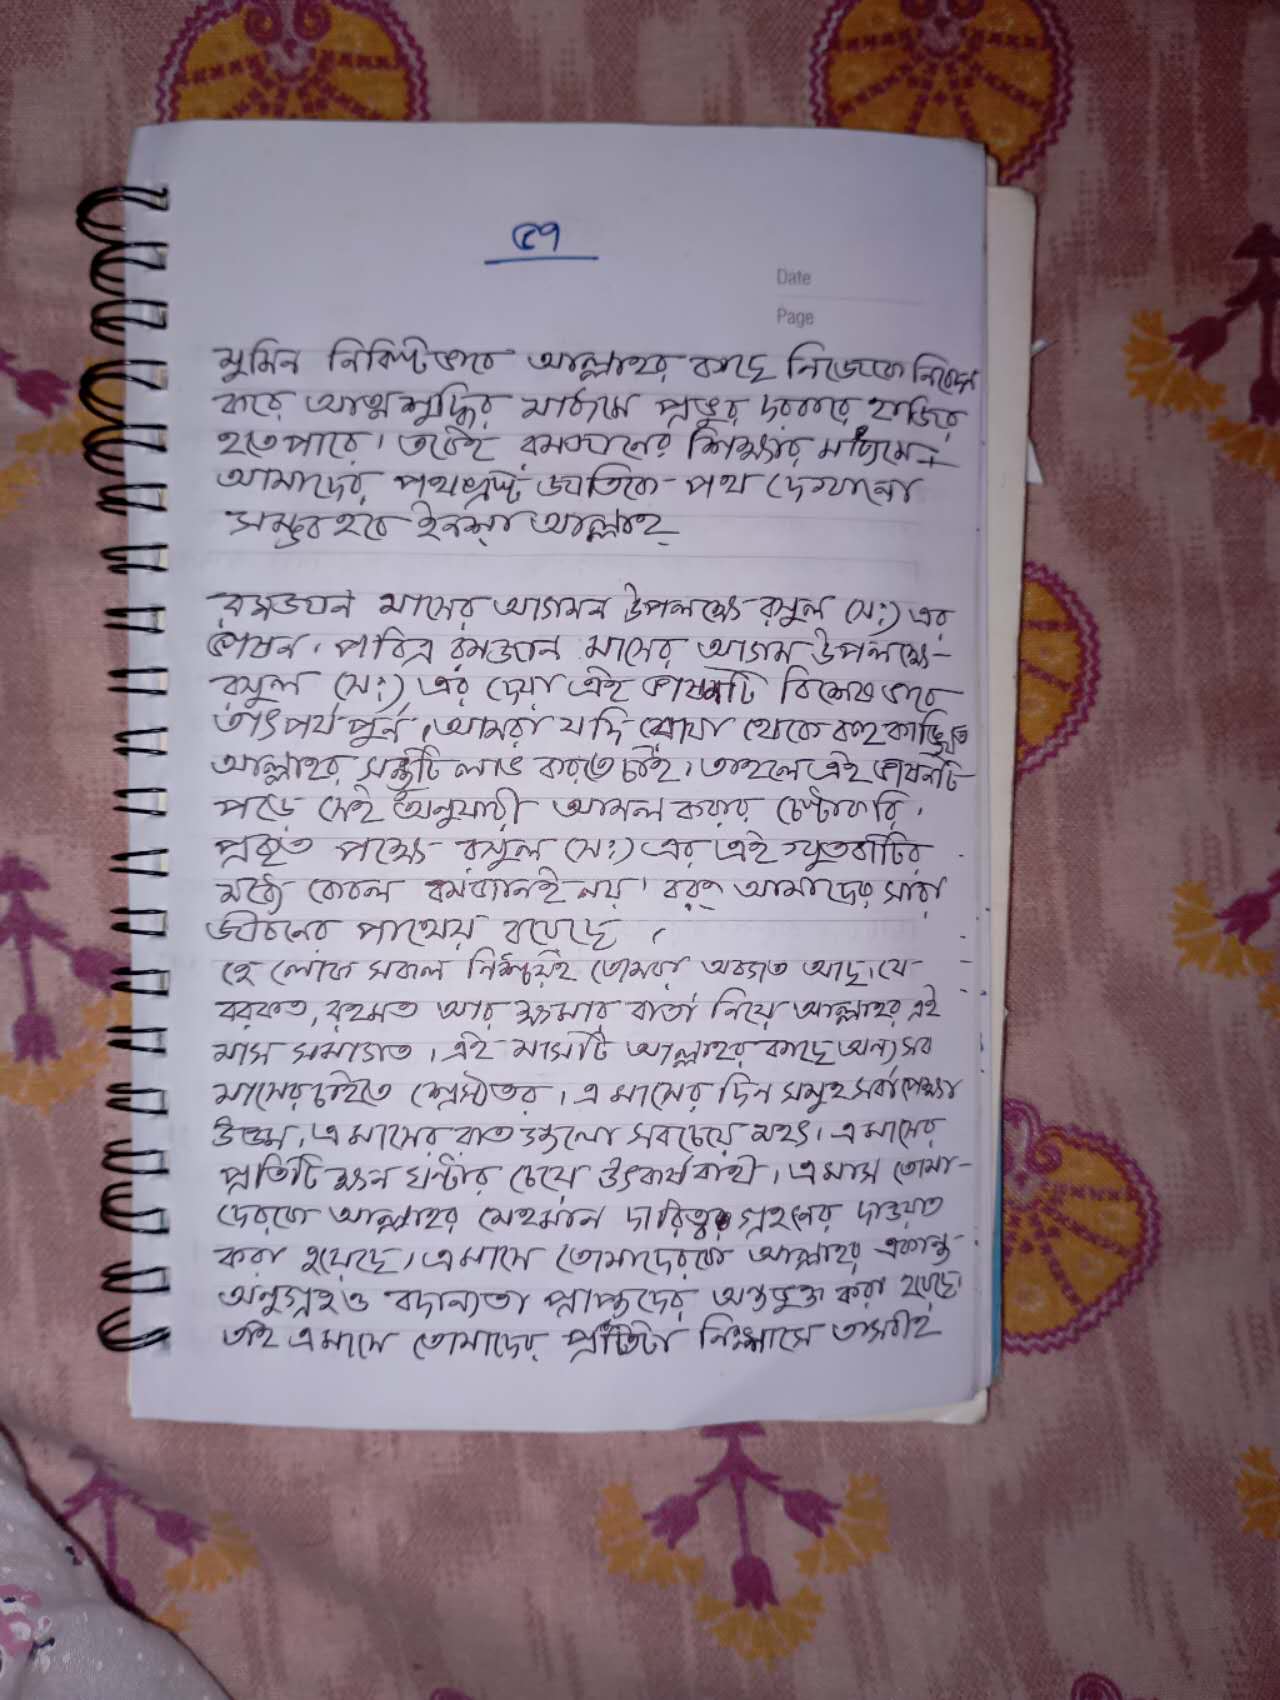 ৫৭
Date
Page
মুমিন নিবিষ্টভাবে আল্লাহর কাছে নিজেকে নিবেদন
করে আত্মশুদ্ধির মাধ্যমে প্রভুর দরবারে হাজির
হতে পারে। তবেই রমজানের শিক্ষার মাধ্যমে
আমাদের পথভ্রষ্ট জাতিকে পথ দেখানো
সম্ভব হবে ইনশা আল্লাহ্
রমজান মাসের আগমন উপলক্ষে রসুল (স:) এর
ভাষন। পবিত্র রমজান মাসের আগম উপলক্ষে-
রসুল (স:) এর দেয়া এই ভাষনটি বিশেষ ভাবে
তাৎপর্য পুর্ন। আমরা যদি রোযা থেকে বহু কাঙ্খিত
আল্লাহর সন্তুটি লাভ করতে চাই। তাহলে এই ভাষনটি
পড়ে সেই অনুযায়ী আমল করার চেস্টা করি।
প্রকৃত পক্ষে রসুল (স:) এর এই খুতবাটির
মধ্যে কেবল রমজানই নয়। বরং আমাদের সারা
জীবনের পাথেয় রয়েছে।
হে লোক সকল নিশ্চয়ই তোমরা অবগত আছ। যে
বরকত, রহমত আর ক্ষমার বার্তা নিয়ে আল্লাহর এই
মাস সমাগত। এই মাসটি আল্লাহর কাছে অন্য সব
মাসের চাইতে শ্রেষ্ঠতর। এ মাসের দিন সমুহ সর্বাপেক্ষা
উত্তম। এ মাসের রাত গুলো সবচেয়ে মহৎ। এ মাসের
প্রতিটি ক্ষন ঘন্টার চেয়ে উৎকর্ষবাহী। এ মাস তোমা-
দেরকে আল্লাহর মেহমান দারিত্ব গ্রহণের দাওয়াত
করা হয়েছে। এ মাসে তোমাদেরকে আল্লাহর একান্ত
অনুগ্রহ ও বদান্যতা প্রাপ্তদের অন্তভুক্ত করা হয়েছে।
তাই এ মাসে তোমাদের প্রতিটা নিঃশ্বাসে তাসবীহ